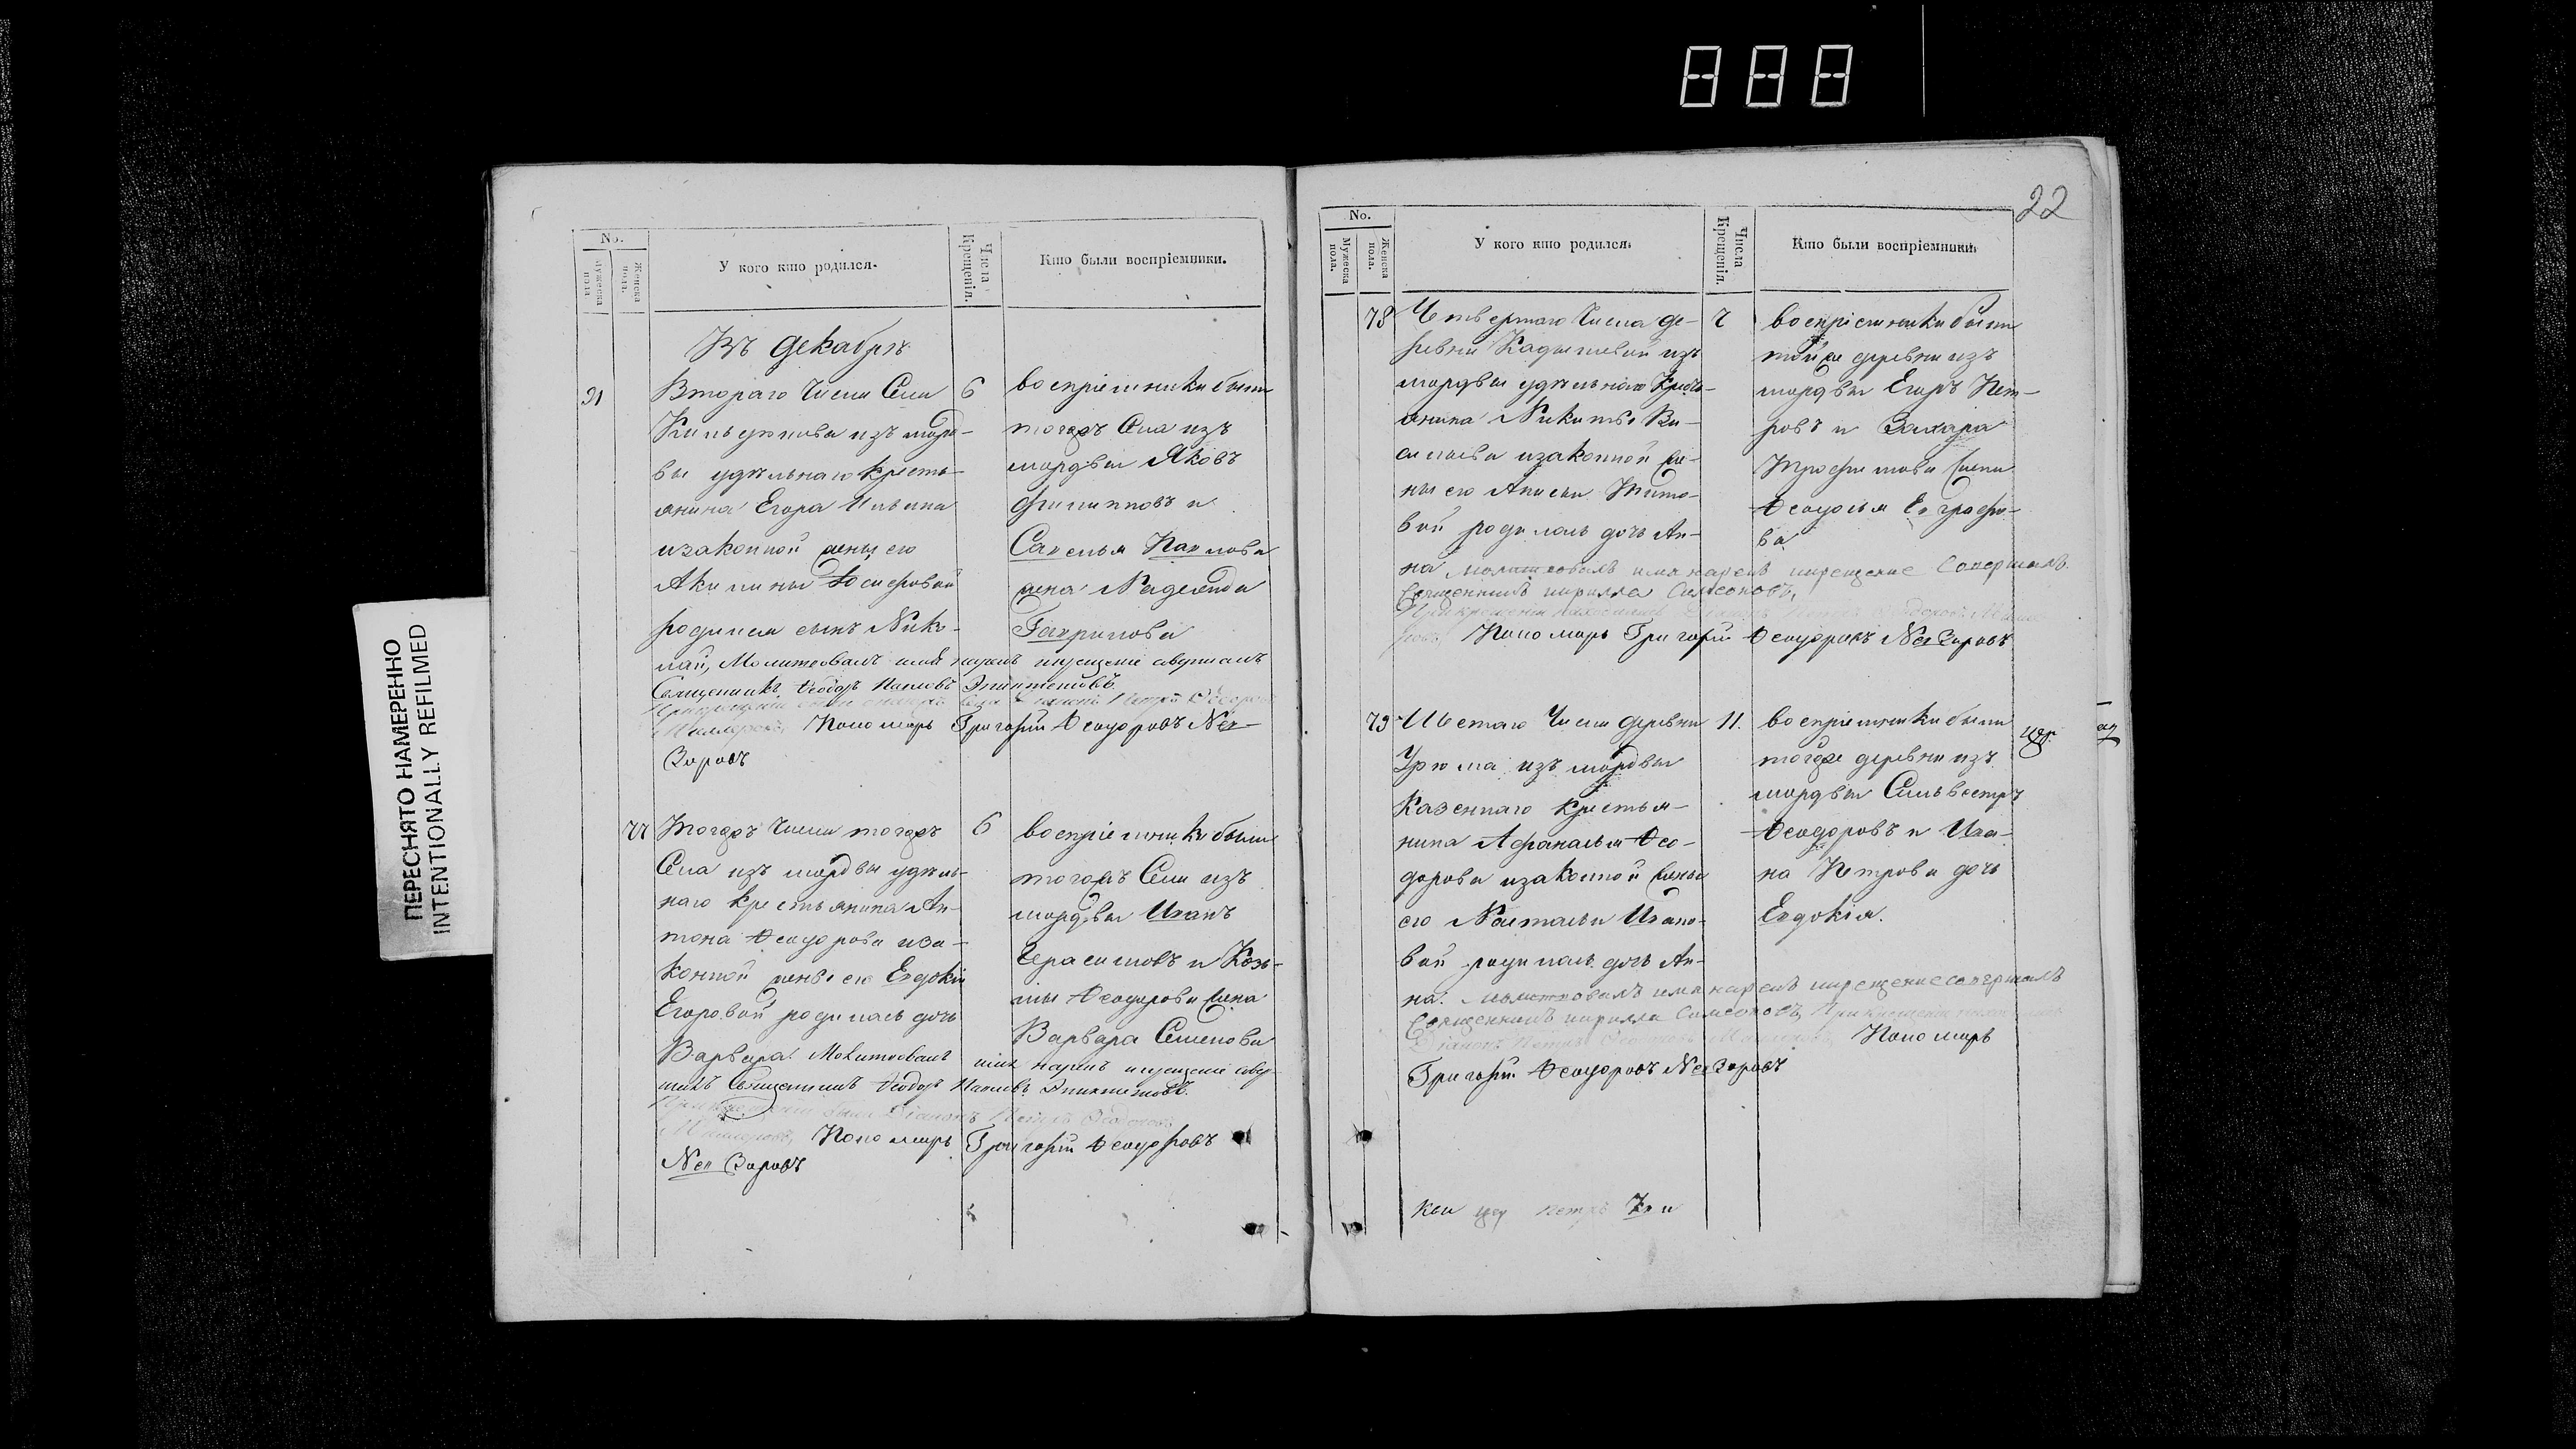 888
ПЕРЕСНЯТО НАМЕРЕННО
INTENTIONALLY REFILMED
No.
Мужеска пола
Женска пола.
У кого кто родился.
Числа Крещенія.
Кто были воспріемники.
Въ Декабрѣ
91
Втораго Числа Села
изъ морд-
вы удѣльнаго кресть-
янина Егора Ильина
изаконной жены его
Акилины Іосифовой
родился сынъ Нико-
лай, Молитвовалъ имя нарекъ икрещеніе совершалъ
Священникъ Ѳеодоръ Павловъ Эпиктетовъ.
Пономарь Григорій Ѳеодоровъ Нев-
зоровъ
6
воспріемники были
тогожъ Села изъ
мордвы Яковъ
Филипповъ и
Савелья Павлова
жена Надежда
Гаврилова
77
Тогожъ Числа тогожъ
Села изъ мордвы удѣль-
наго крестьянина Ан-
тона Ѳеодорова иза-
конной жены его Евдокіи
Егоровой родилась дочь
Варвара. Молитвовалъ имя нарекъ икрещеніе совер-
шалъ Священникъ Ѳеодоръ Павловъ Эпиктетовъ.
Пономарь Григорій Ѳеодоровъ
Невзоровъ
6
воспріемники были
тогожъ Села изъ
мордвы Иванъ
Герасимовъ и Козь-
мы Ѳеодорова жена
Варвара Семенова
22
No.
Мужеска пола.
Женска пола.
У кого кто родился.
Числа Крещенія.
Кто были воспріемники.
78
Четвертаго Числа де-
ревни Кадышевой изъ
мордвы удѣльнаго Кресть-
янина Никиты Ва-
сильева изаконной же-
ны его Анисьи Тито-
вой родилась дочь Ан-
на Молитвовалъ имя нарекъ икрещение Совершалъ.
Священникъ Кирилла Симеоновъ,
Пономарь Григорій Ѳеодоровъ Невзоровъ
7
воспріемники были
тойже деревни изъ
мордвы Егоръ Пет-
ровъ и Захара
Трофимова жена
Ѳеодосья Евграфо-
ва
79
Шестаго Числа деревни
Урюма изъ мордвы
Казеннаго крестья-
нина Афанасья Ѳео-
дорова изаконной жены
его Натальи Ивано-
вой родилась дочь Ан-
на. Молитвовалъ имя нарекъ икрещение совершалъ
Священникъ Кирилла Симеоновъ,
Пономарь
Григорій Ѳеодоровъ Невзоровъ
11.
воспріемники были
тогоже деревни изъ
мордвы Сильвестръ
Ѳеодоровъ и Ива-
на Петрова дочь
Евдокія.
цер.